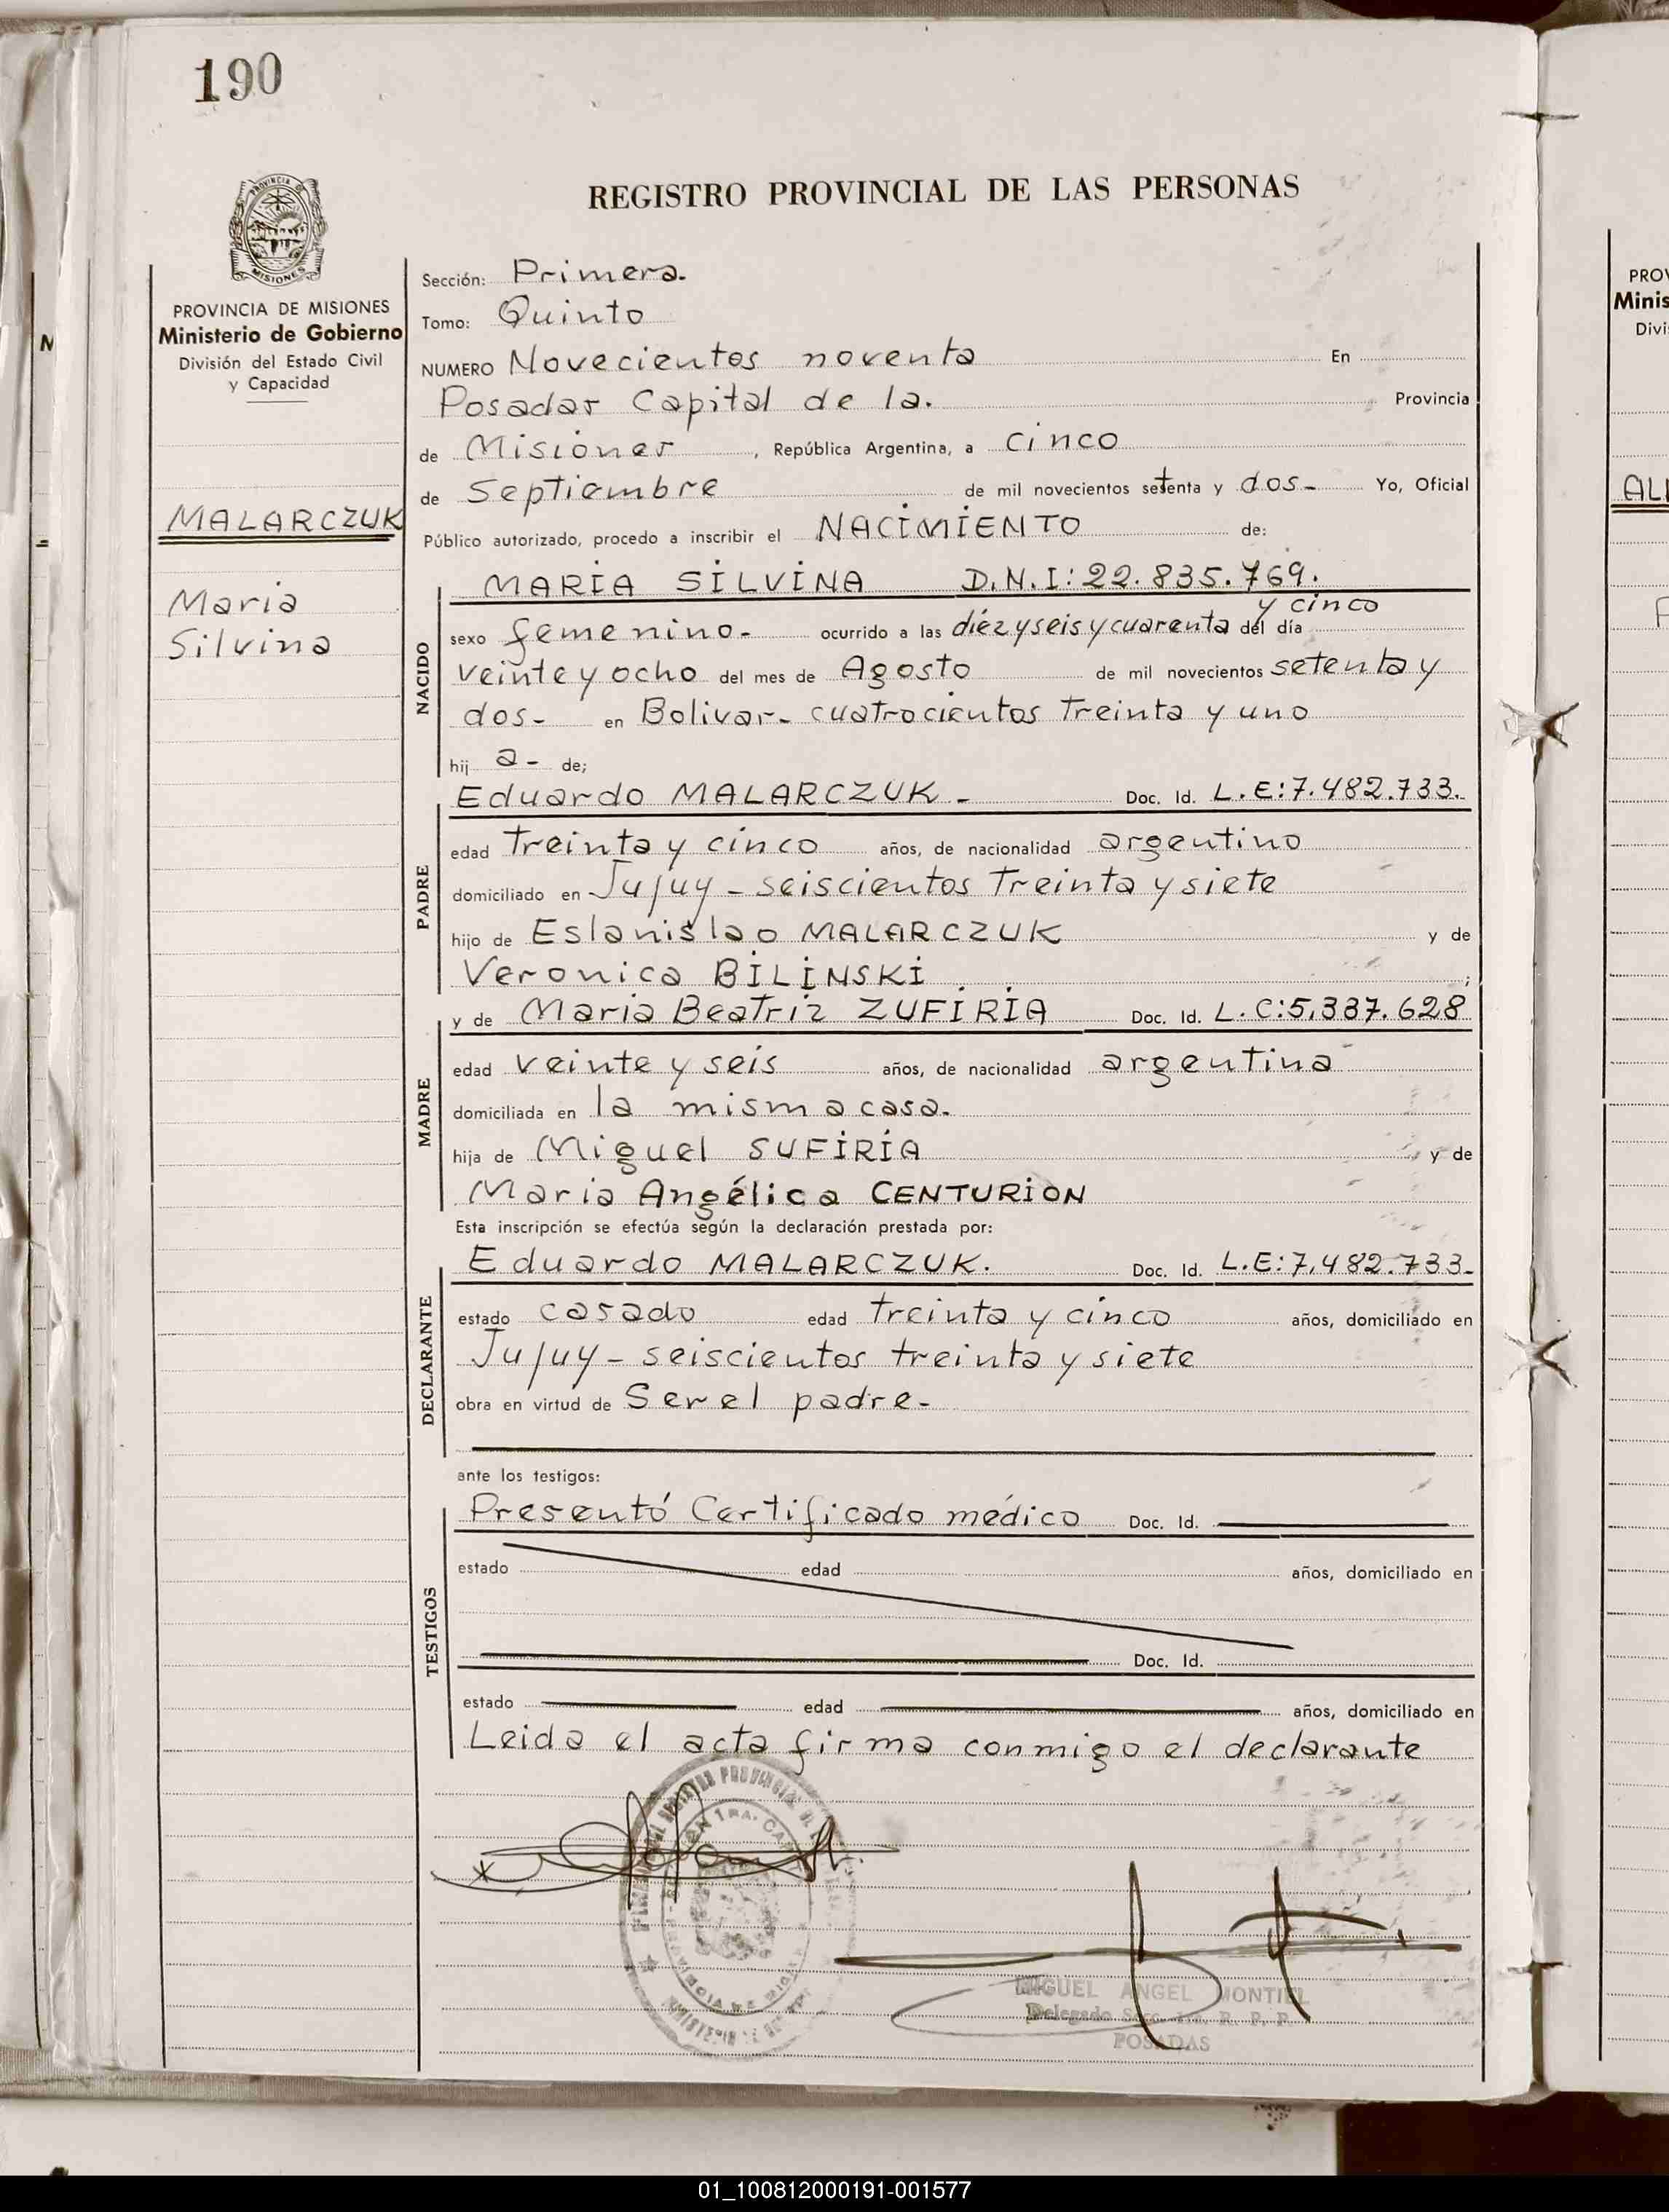 190
PROVINCIA DE
MISIONES
PROVINCIA DE MISIONES
Ministerio de Gobierno
División del Estado Civil
y Capacidad
MALARCZUK
Maria
Silvina
REGISTRO PROVINCIAL DE LAS PERSONAS
Sección: Primera.
Tomo: Quinto
NUMERO Novecientos noventa En
Posadas Capital de la. Provincia
de Misiones, República Argentina, a cinco
de Septiembre de mil novecientos setenta y dos- Yo, Oficial
Público autorizado, procedo a inscribir el NACIMIENTO de:
MARIA SILVINA D.N.I: 22.835.769.
y cinco
NACIDO
sexo femenino.- ocurrido a las diez y seis y cuarenta del día
veinte y ocho del mes de Agosto de mil novecientos setenta y
dos- en Bolivar- cuatrocientos treinta y uno
hij a- de;
PADRE
Eduardo MALARCZUK - Doc. Id. L.E: 7.482.733.
edad treinta y cinco años, de nacionalidad argentino
domiciliado en Jujuy - seiscientos treinta y siete
hijo de Eslanislao MALARCZUK y de
Veronica BILINSKI ;
MADRE
y de Maria Beatriz ZUFIRIA Doc. Id. L.C: 5,387.628
edad veinte y seis años, de nacionalidad argentina
domiciliada en la misma casa.
hija de Miguel SUFIRIA y de
Maria Angélica CENTURION
Esta inscripción se efectúa según la declaración prestada por:
DECLARANTE
Eduardo MALARCZUK. Doc. Id. L.E: 7,482.733-
estado casado edad treinta y cinco años, domiciliado en
Jujuy - seiscientos treinta y siete
obra en virtud de Ser el padre.-
ante los testigos:
TESTIGOS
Presentó Certificado médico Doc. Id.
estado edad años, domiciliado en
Doc. Id.
estado edad años, domiciliado en
Leida el acta firma conmigo el declarante
MIGUEL ANGEL MONTIEL
Delegado Secc. 1ra. R. P. P.
POSADAS
PROV
Minis
Divi
01_100812000191-001577